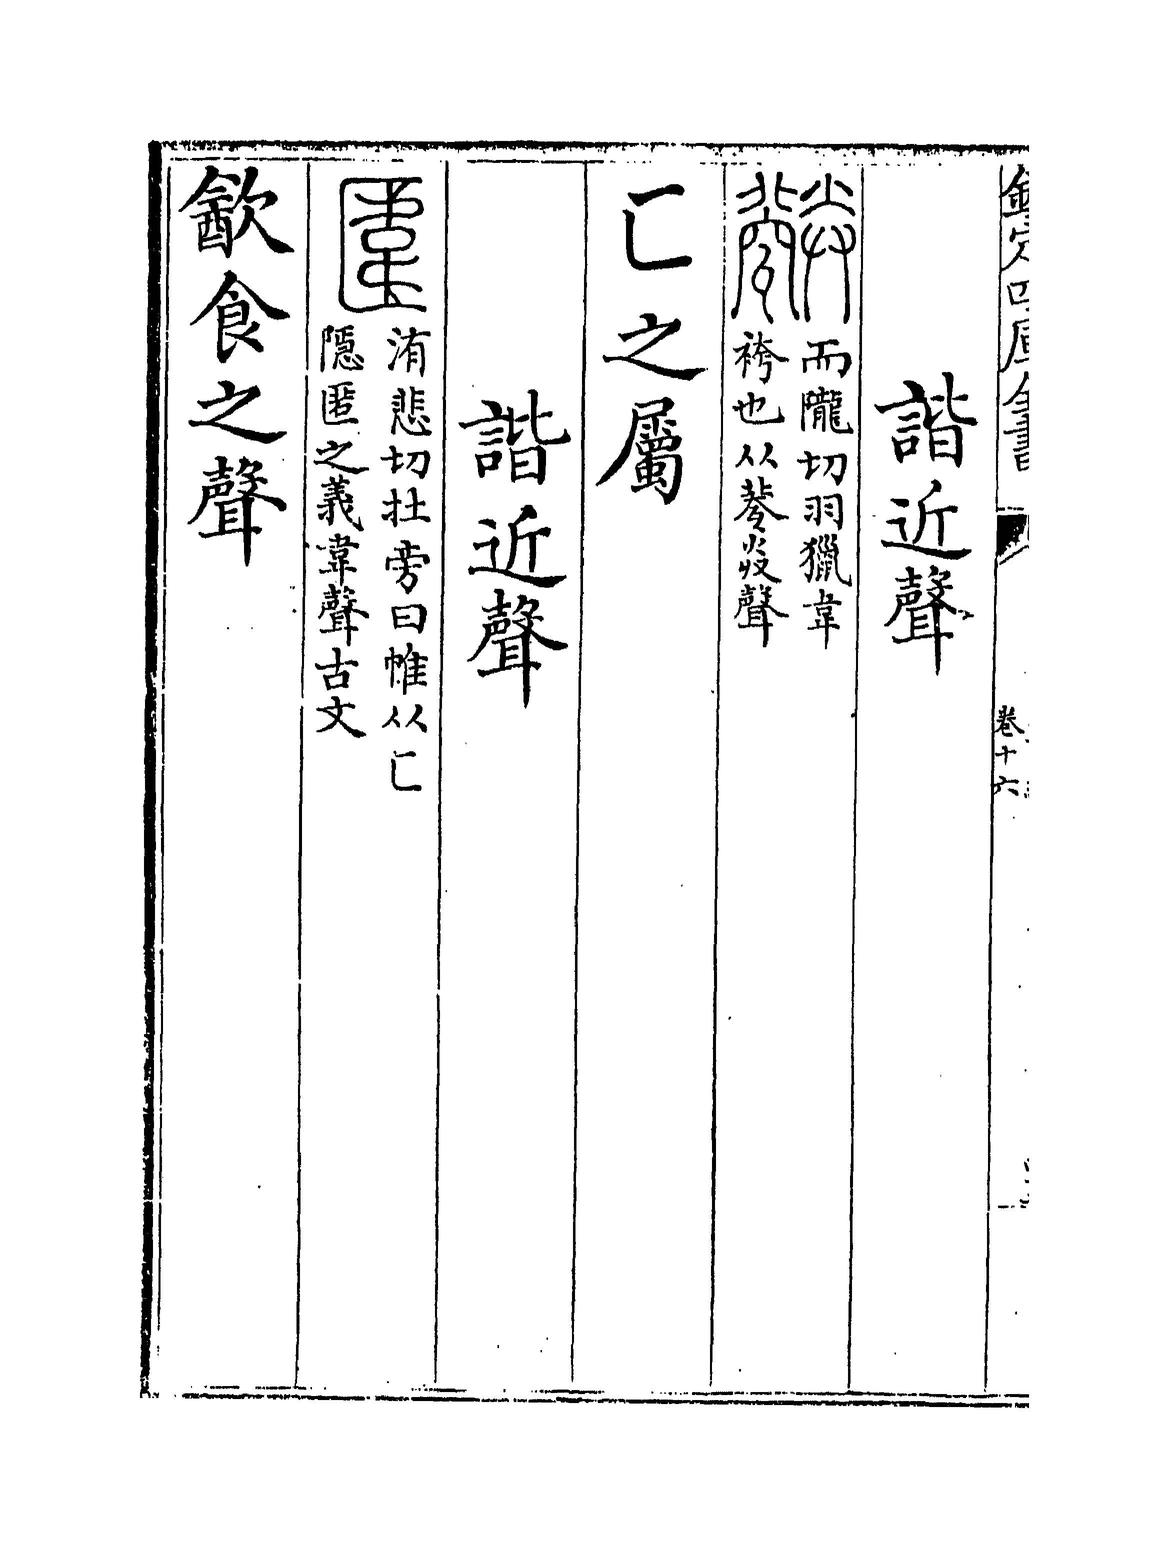 欽定四庫全書
卷十六
諧近聲
而隴切羽獵韋
袴也从灷聲
匸之屬
諧近聲
洧悲切扗旁曰帷从匸
隱匿之義韋聲古文
㱃食之聲